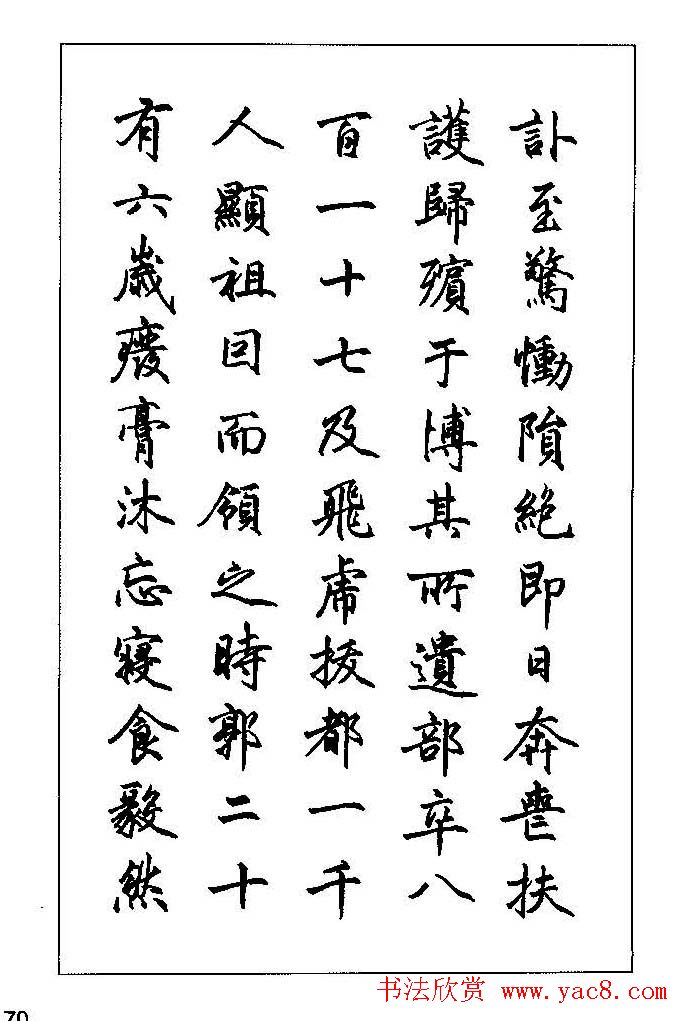 訃至驚慟隕絕即日奔喪扶
護歸殯于博其所遺部卒八
百一十七及飛虜援都一千
人顯祖回而領之時郭二十
有六歲廢膏沐忘寢食毅然
书法欣赏 www.yac8.com
70